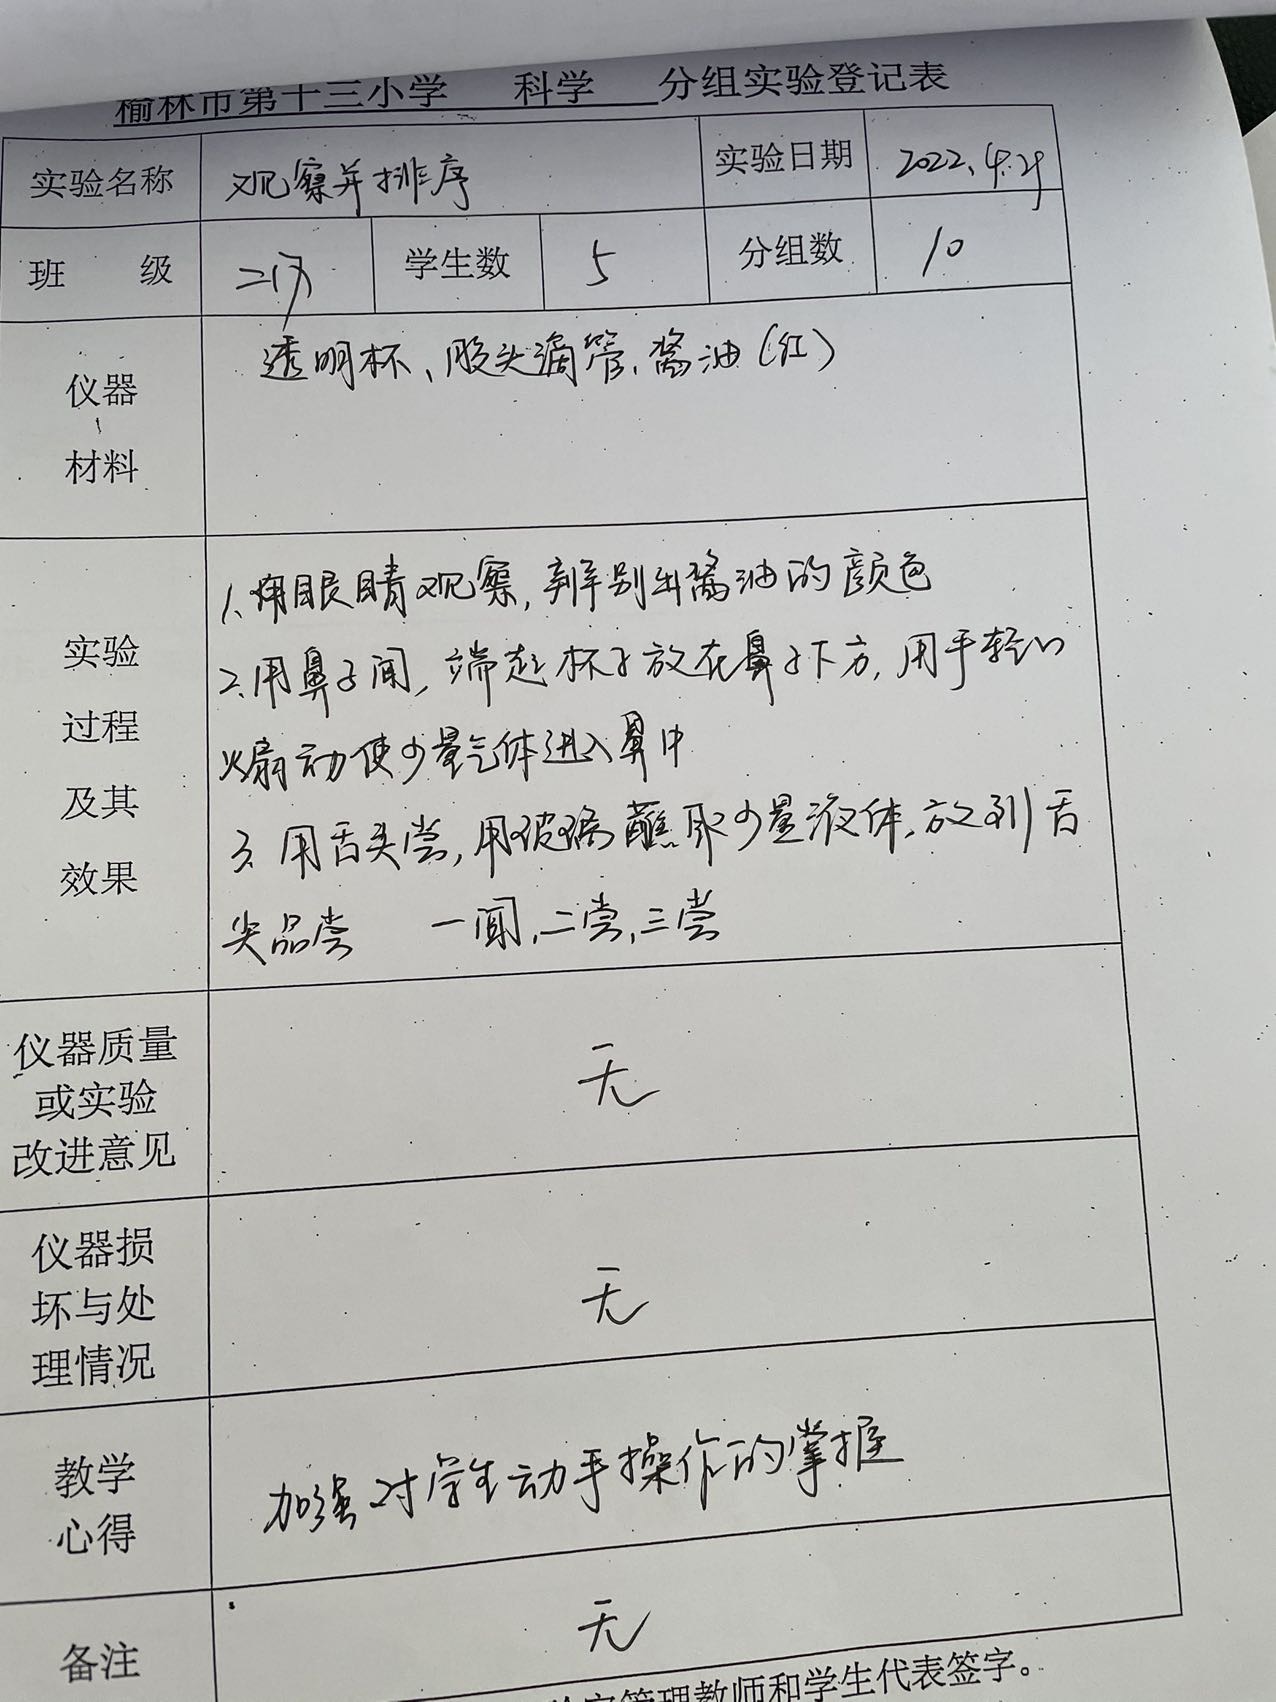 榆林市第十三小学 科学 分组实验登记表
实验名称 观察并排序 实验日期 2022.4.29
班 级 学生数 5 分组数 10
仪器材料 透明杯、胶头滴管、酱油(红)
实验过程及其效果
1、用眼睛观察,辨别出酱油的颜色
2、用鼻子闻,端起杯子放在鼻子下方,用手轻轻
煽动使少量气体进入鼻中
3、用舌头尝,用玻璃蘸取少量液体,放到舌
尖品尝 一闻,二尝,三尝
仪器质量或实验改进意见 无
仪器损坏与处理情况 无
教学心得 加强对学生动手操作的掌握
备注 无
管理教师和学生代表签字。